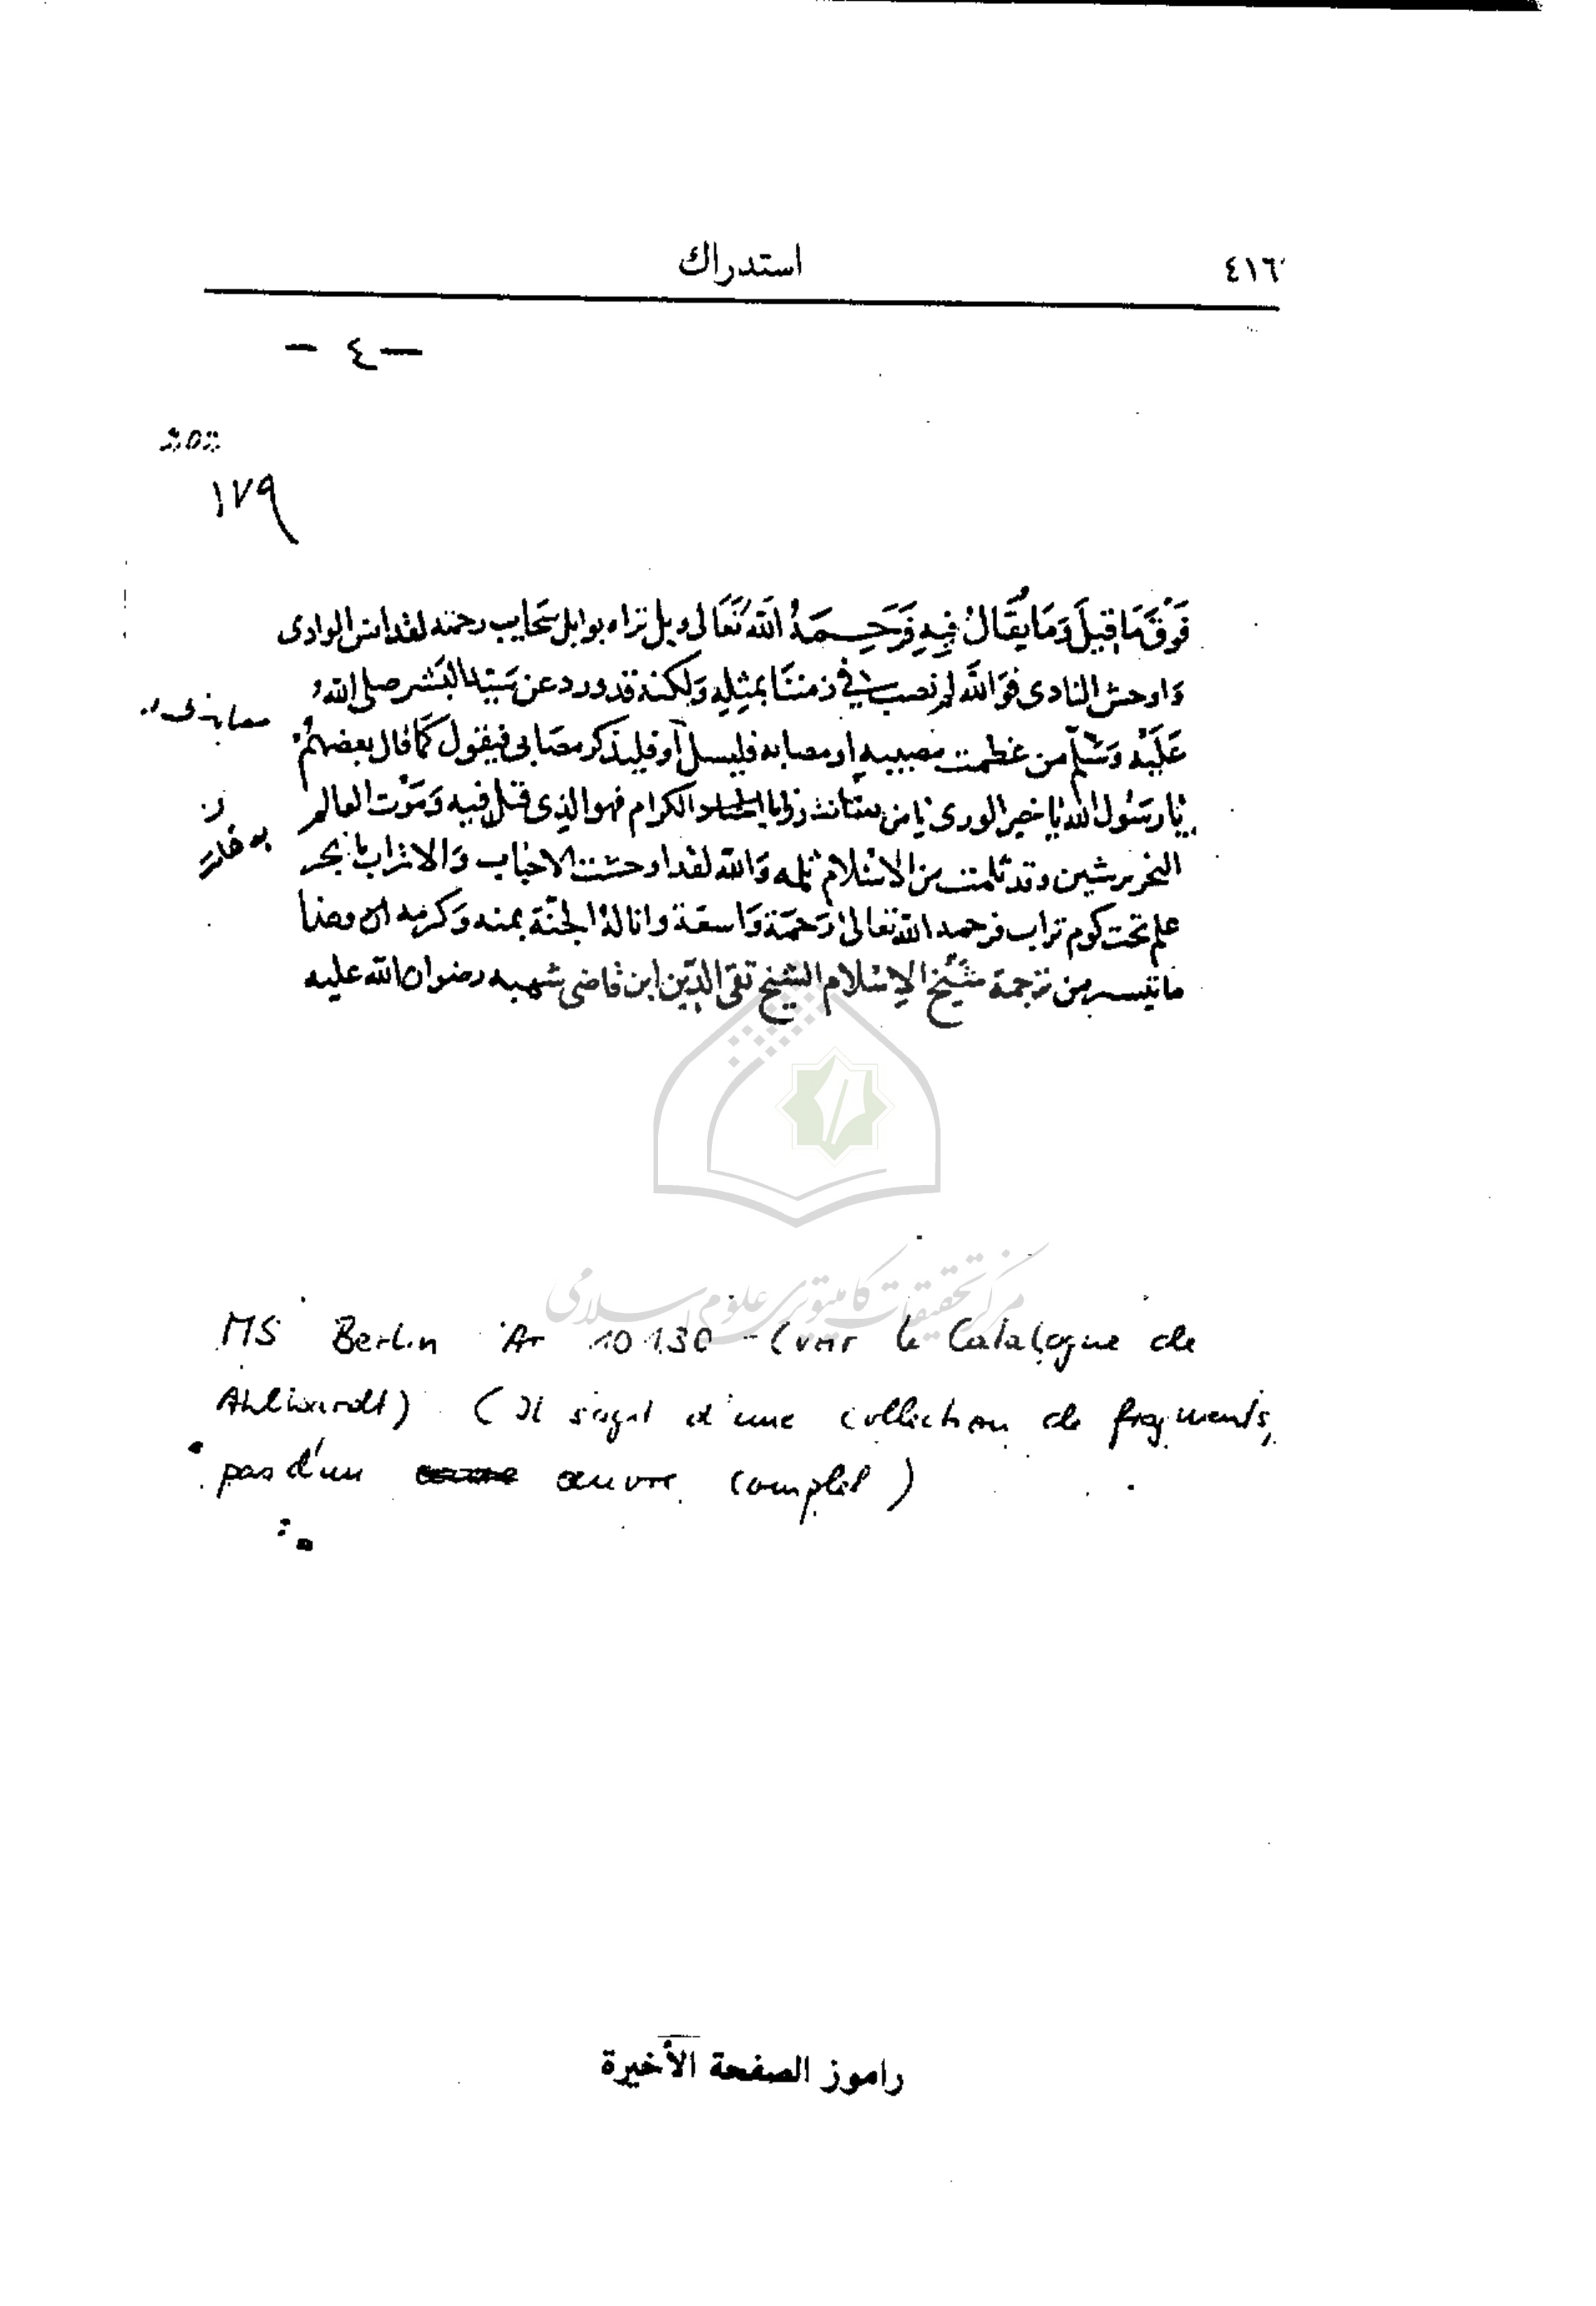 ٤١٦
استدراك
— ٤ —
١٧٩
فَوْقَ مَا قِيلَ وَمَا يُقَالُ فِيهِ فَرَحِمَهُ اللَّهُ تَعَالَى وبل ثراه بوابل سَحَايب رحمته لقد انس الوادى
وَاوحش النادى فوَاللَّه لم نصب في زمننَا بمثِلِه وَلكنه قد ورد عن سَيّد البَشر صلى الله
عَلَيْه وَسَلّم من عَظمت مصيبته او مصابه فليسل او فليذكر مصَابى فيقول كَمَا قال بعضهُم
يَا رَسُول اللَّه يَا خير الورى يَا من الكرام فهو الذى قيل فيه وَمَوْت العالم
النحرير شين وقد ثلمت من الاسْلام ثلمه وَاللَّه لقد اوحشت الاحبَاب وَالاتراب يا بحر
علم تحت كوم تراب فرحمه اللَّه تعَالى رَحمَة وَاسعَة وانالهُ الجنَّة بمنه وَكرمه
مَا تيسر من ترجمة شَيْخ الإسْلام الشيْخ تقى الدّين ابن قاضى شهبه رضوان اللَّه عليه
مركز تحقيقات كامپيوترى علوم اسلامى
MS Berlin Ar 10130 - (voir le Catalogue de
Ahlwardt) (Il s'agit d'une collection de fragments,
pas d'un œuvre complet)
راموز الصفحة الأخيرة